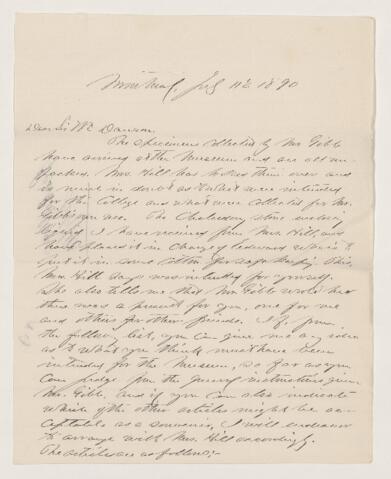 Montreal, July 11th 1890
Dear Sir Wm Dawson.
The specimens collected by Mr. Gibb
have arrived at the Museum and are all un-
packed. Mrs. Hill has looked them over and
is much in doubt as to what were intended
for the College and what were collected for Mr.
Gibb's own use. The
I have received from Mrs. Hill, and
have placed it in charge of
put it in some cotton for safe keeping. This,
Mrs. Hill says was intended for yourself.
She also tells me that Mr. Gibb wrote her
there was a present for you, one for me
and others for other friends. If, from
the following list, you can give me any idea
as to what you think must have been
intended for the Museum, so far as you
can judge from the general instructions given
Mr. Gibb, and if you can also indicate
which of the other articles might be ac-
ceptable as a souvenir, I will endeavor
to arrange with Mrs. Hill accordingly.
The articles are as follows:-